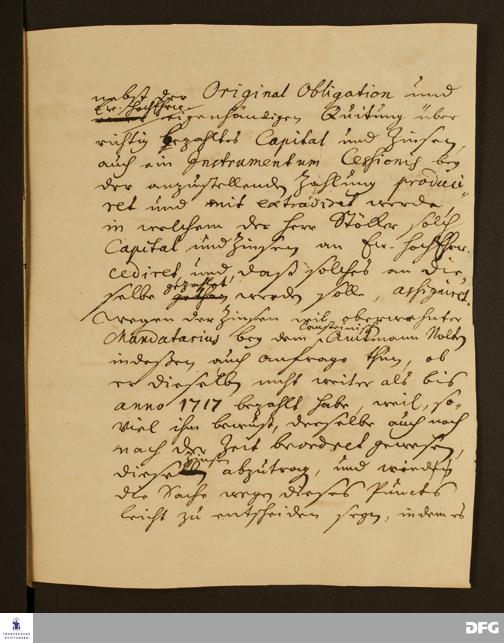 nebst der Original Obligation und
Ew. Hochfhrr.
eigenhändigen Quitung über
richtig bezahltes Capital und Zinsen,
auch ein Instrumentum Cessionis bey
der anzustellenden Zahlung produci-
ret und mit extradiret werde,
in welchem der Herr Stöller solch
Capital und Zinsen an Ew. Hochfhrr.
cediret, und daß solches an die-
selbe gezahlt werden solle, assigniret.
Wegen der Zinsen wil oberwehnter
Mandatarius bey dem Amtmann Nolte
indeßen auch anfrage thun, ob
er dieselben nicht weiter als bis
anno 1717 bezahlt habe, weil, so-
viel ihm bewust, derselbe auch noch
nach der Zeit beordret gewesen,
diese Zinsen abzutragen, und würde
die Sache wegen dieses Puncts
leicht zu entscheiden seyn, indem es
FRANCKESCHE
STIFTUNGEN
DFG